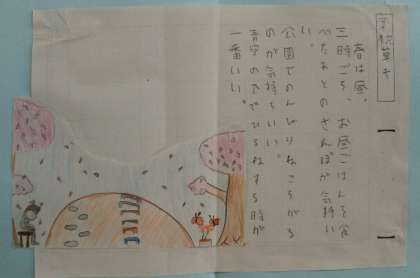 子枕草子
春は昼。
三時ごろ、お昼ごはんを食
べたあとのさんぽが気持い
い。
公園でのんびりねころがる
のが気持ちいい。
青空の下でひるねする時が
一番いい。